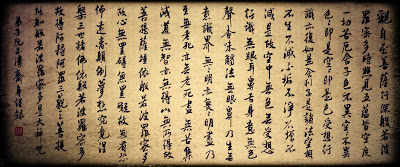 觀自在菩薩行深般若波
羅蜜多時照見五蘊皆空度
一切苦厄舍子色不異空空不異
色色即是空空即是色受想行
識亦復如是舍利子是諸法空相
不生不滅不垢不淨不增不
減是故空中無色無受想
行識無眼耳鼻舌身意無色
聲香味觸法無眼界乃至無
意識界無明亦無無明盡乃
至無老死亦無老死盡無苦集
滅道無智亦無得以無所得故
菩提薩埵依般若波羅蜜多
故心無罣礙無罣礙故無有恐
怖遠離顛倒夢想究竟涅
槃三世諸佛依般若波羅蜜多
故得阿耨多羅三藐三菩提
故知般若波羅蜜多是大神咒
弟子阮玉清齋身謹錄